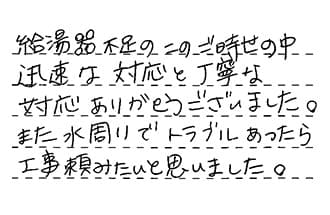 給湯器不足のこのご時世の中
迅速な対応と丁寧な
対応ありがとうございました。
また水周りでトラブルあったら
工事頼みたいと思いました。